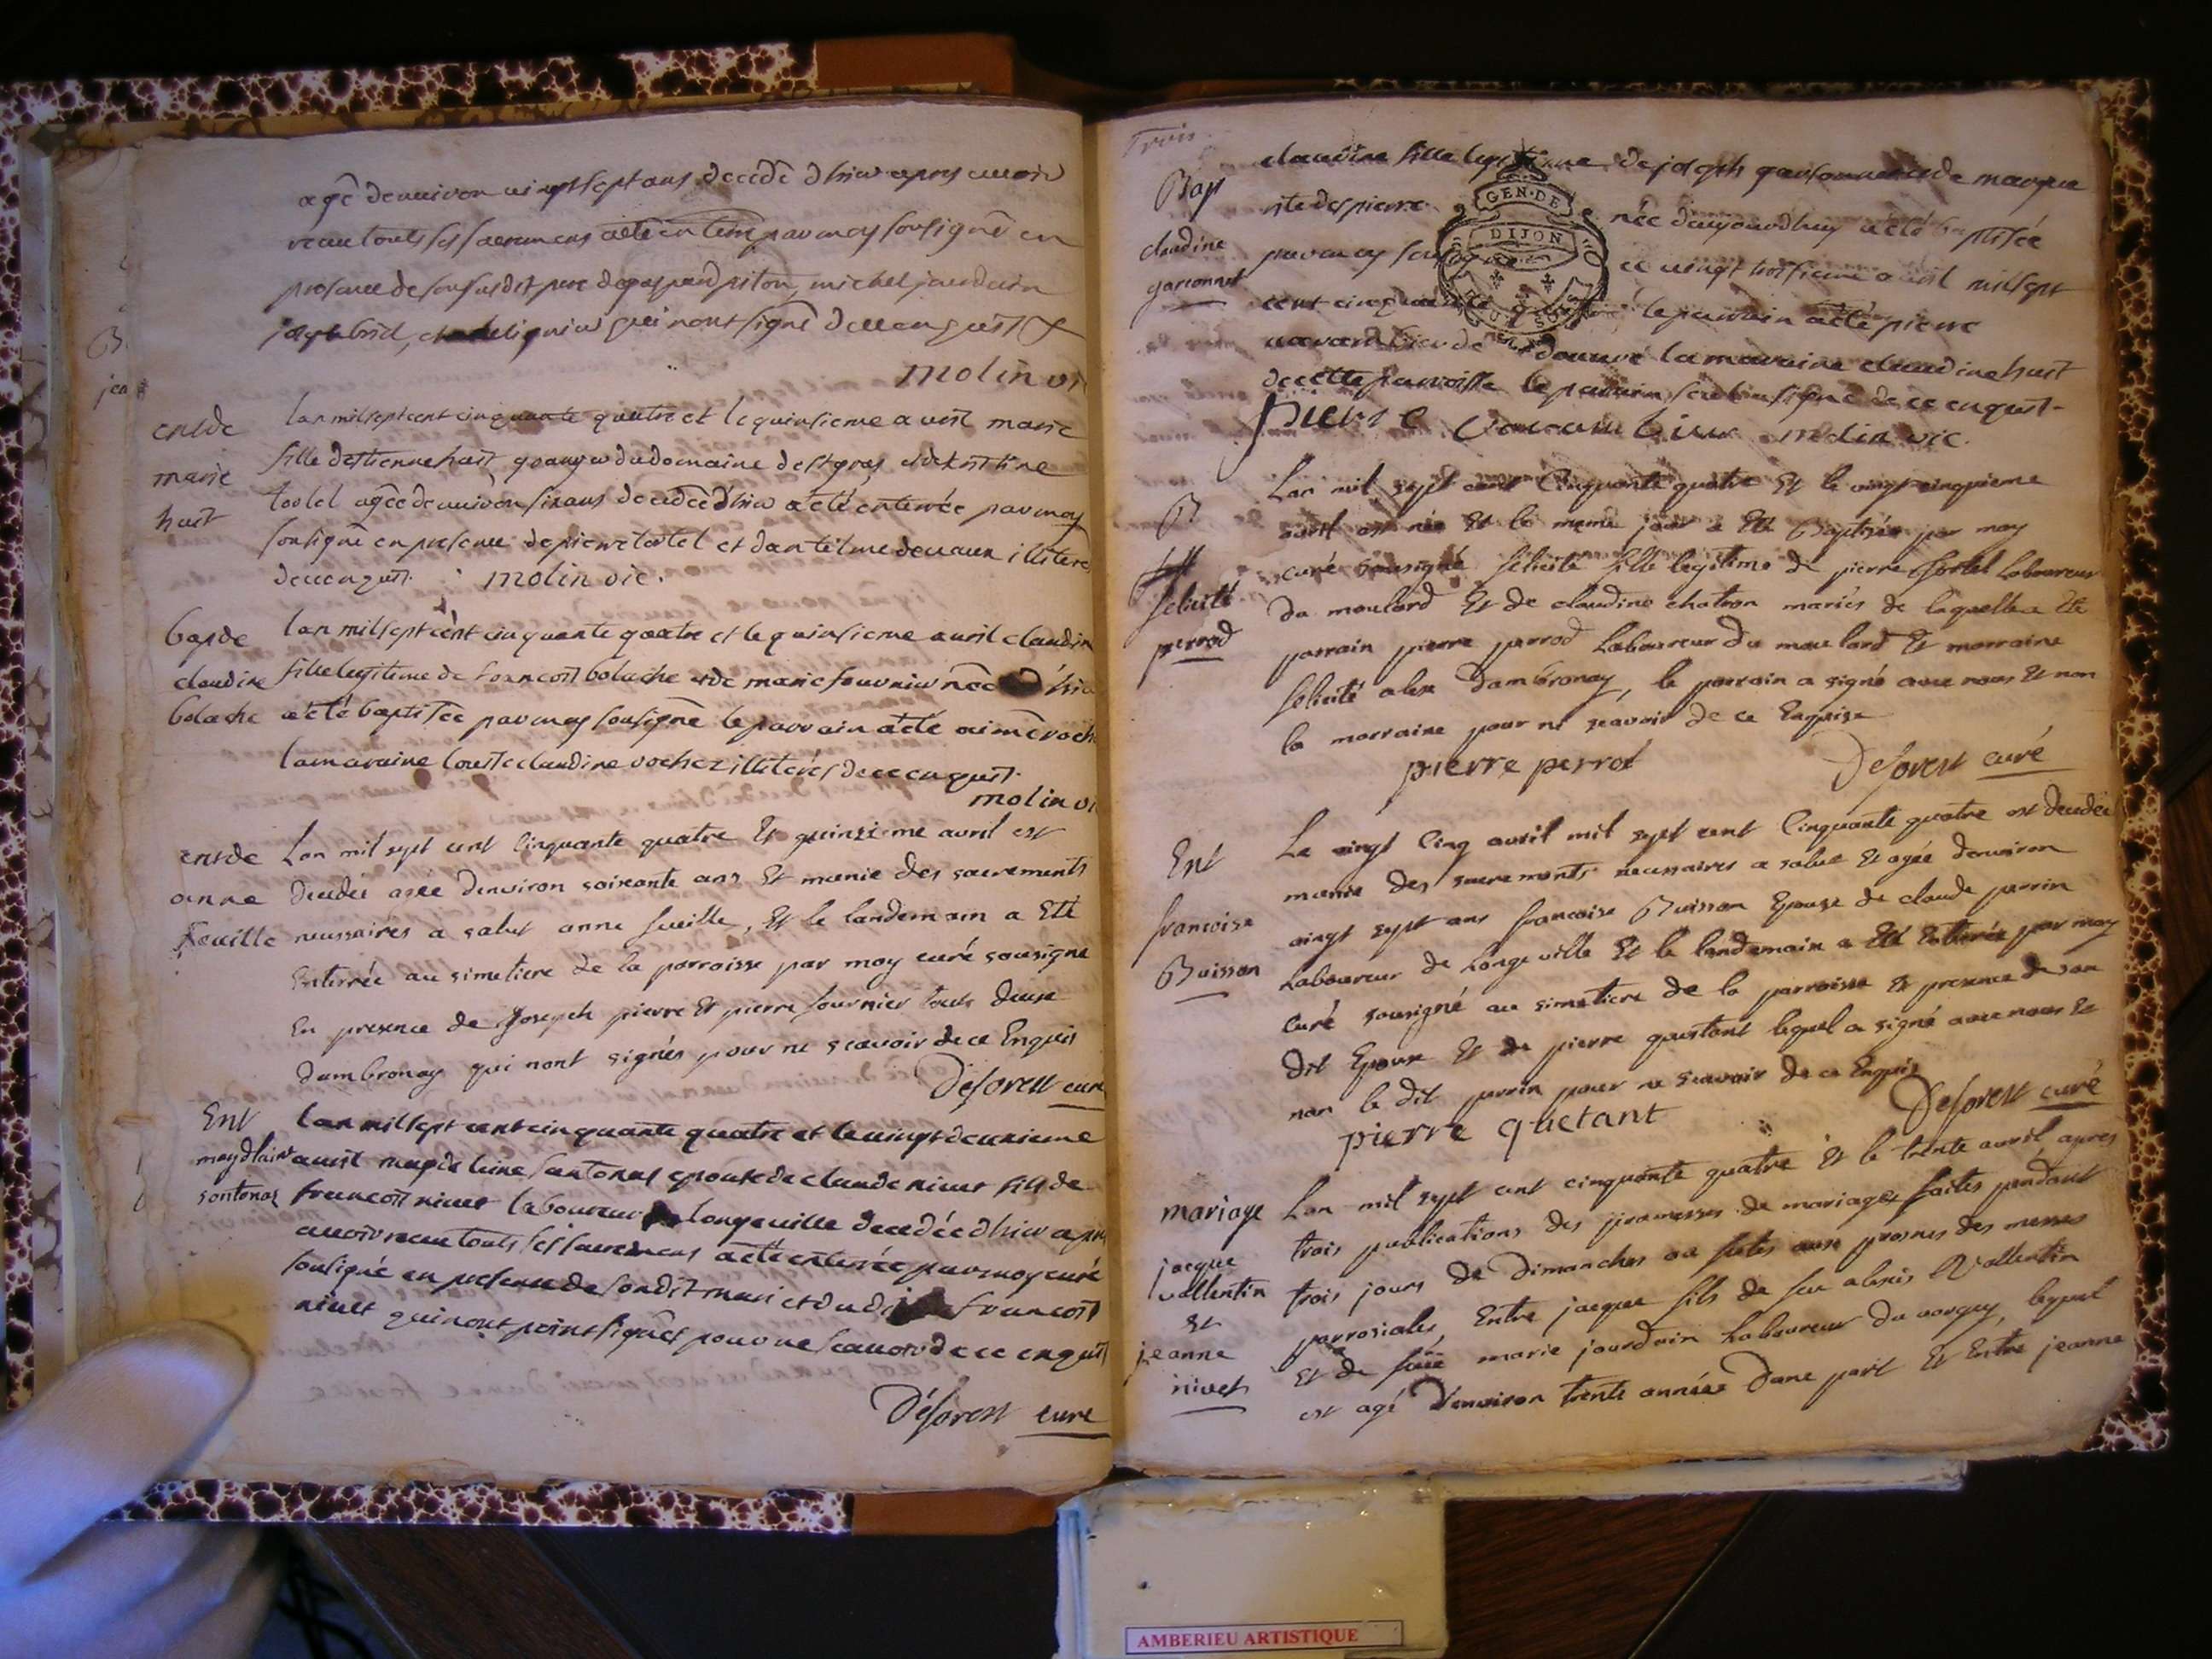 agé denviron vingt sept ans decedé dhier apres avoir
receu touts ses sacremens a eté enterré par moy sousigné en
presence de son susdit pere de gaspard piton, michel jourdain
joseph bril, qui nont signé de ce enquist
molin vic
ent de
marie
huit
lan mil sept cent cinquante quatre et le quinsieme avril marie
fille destienne huit granger du domaine de et de
tostel agée denviron six ans decedée dhier a eté enterrée par moy
sousigné en presence de pierre tostel et dantelme devaux illiteré
de ce enquist. molin vic.
bap de
claudine
bolache
lan mil sept cent cinquante quatre et le quinsieme avril claudine
fille legitime de francois bolache et de marie fournier née dhier
a eté baptisée par moy sousigné le parrain a eté aimé roche
la maraine claudine rochez illiterés de ce enquist.
molin vic
ent de
anne
feuille
Lan mil sept cent Cinquante quatre Et quinzieme avril est
Decedée agée Denviron soixante ans Et munie des sacrements
necessaires a salut anne feuille, Et le landemain a Eté
Enterrée au simetiere de la parroisse par moy curé sousigne
En presence de Joseph pierre Et pierre fournier touts deux
Dambronay qui nont signés pour ne scavoir de ce Enquis
Deforest curé
Ent
maydlaine
sontonas
lan mil sept cent cinquante quatre et le vingt deuxieme
avril magdelaine santonas epouse de claude nivet fils de
francois nivet laboureur longeville decedée dhier apres
avoir receu touts ses sacremens a eté enterrée par moy curé
sousigné en presence de son dit mari et du dit francois
nivet qui nont point signés pour ne scavoir de ce enquis
Deforest curé
Trois
Bap
claudine
garconnet
claudine fille legitime de joseph garsonnet et de margue
rite despierre née daujourdhuy a eté baptisée
par moy sousigné ce vingt troisieme avril mil sept
cent cinquante quatre le parrain a eté pierre
de douvre la maraine claudine huit
de cette parroisse le parrain seul a signé de ce enquist.
pierre molin vic.
GEN·DE
DIJON
B
felicité
perrod
Lan mil sept cent Cinquante quatre Et le vingt cinquieme
avril est née Et le meme jour a Eté Baptisée par moy
curé sousigné felicité fille legitime de pierre Laboureur
du moulard Et de claudine chatron mariés de laquelle a Eté
parrain pierre perrod Laboureur du moulard Et marraine
felicité alex Dambronay, le parrain a signé avec nous Et non
la marraine pour ne scavoir de ce Enquise
pierre perrot Deforest curé
Ent
francoise
Buisson
Le vingt Cinq avril mil sept cent Cinquante quatre est decedée
munie des sacrements necessaires a salut Et agée denviron
vingt sept ans francoise Buisson Epouse de claude perrin
Laboureur de Longeville Et le landemain a Eté Enterrée par moy
curé sousigné au simetiere de la parroisse En presence de son
dit Epoux Et de pierre questant lequel a signé avec nous Et
non le dit perrin pour ne scavoir de ce Enquis
pierre quetant Deforest curé
mariage
jacque
vallentin
Et
jeanne
nivet
Lan mil sept cent cinquante quatre Et le trente avril apres
trois publications des promesses de mariages faites pendant
trois jours de Dimanches ou fetes aux prosnes des messes
parrosiales, Entre jacque fils de feu alexis Vallentin
Et de feue marie jourdain Laboureur du vorgey, lequel
est agé denviron trente années dune part Et Entre jeanne
AMBERIEU ARTISTIQUE